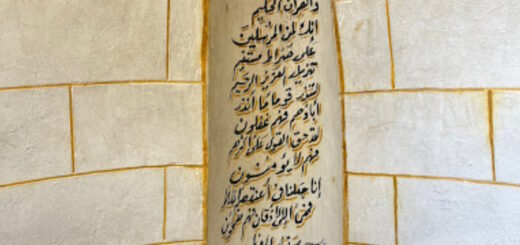 والقرآن الحكيم
إنك لمن المرسلين
على صراط مستقيم
تنزيل العزيز الرحيم
لتنذر قوما ما أنذر
آباؤهم فهم غفلون
لقد حق القول على أكثرهم
فهم لا يؤمنون
إنا جعلنا في أعنقهم أغللا
فهي إلى الأذقان فهم مقمحون